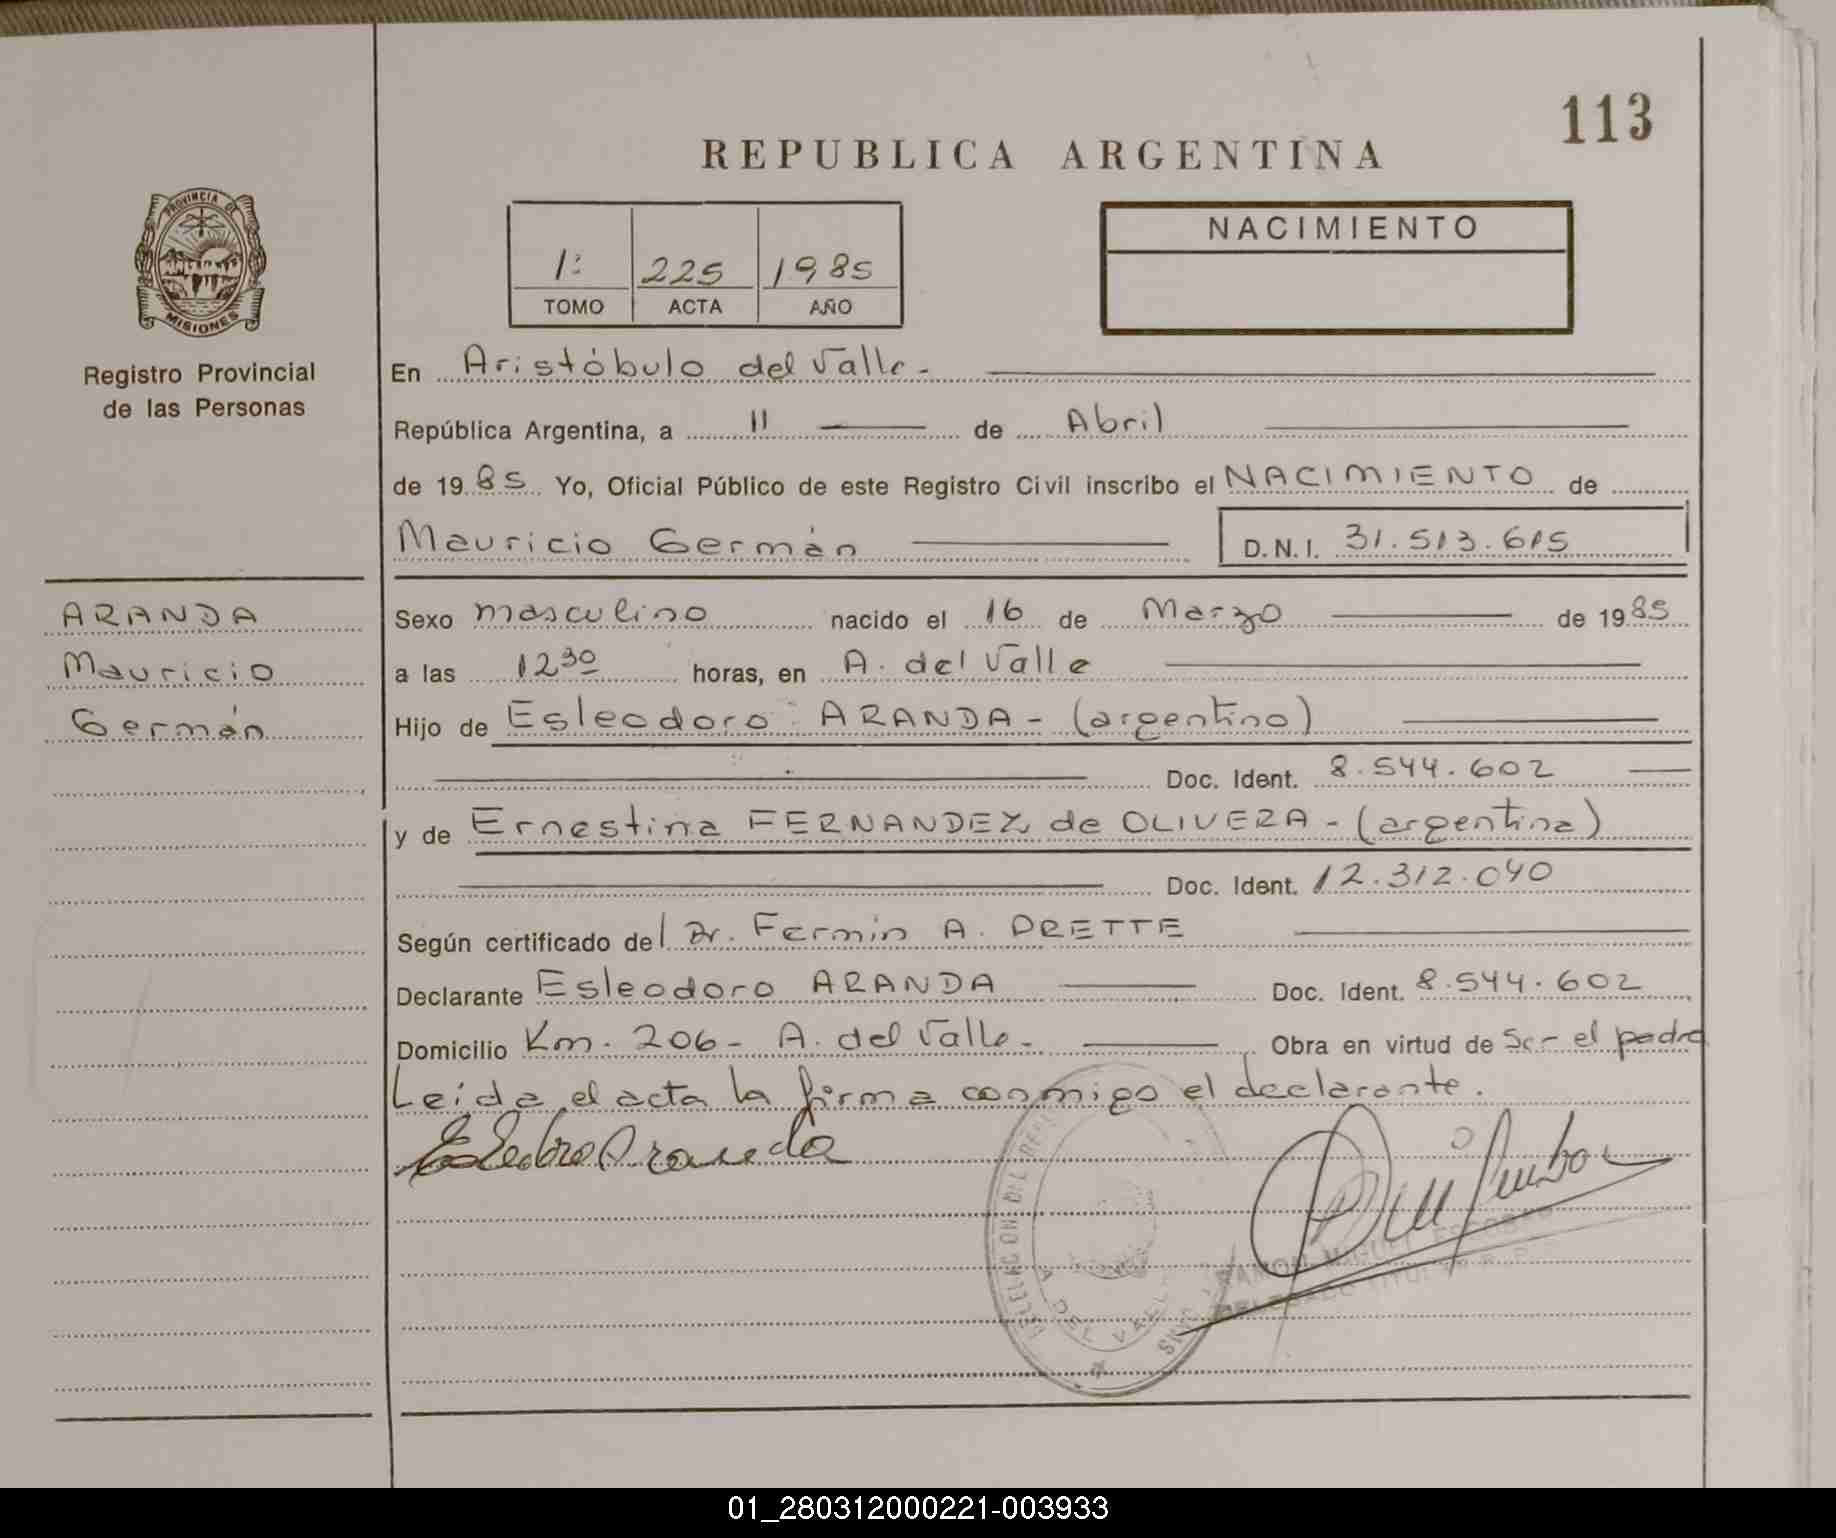 113
REPUBLICA ARGENTINA
PROVINCIA DE
MISIONES
Registro Provincial
de las Personas
1: 225 1985
TOMO ACTA AÑO
NACIMIENTO
En Aristóbulo del Valle.
República Argentina, a 11 de Abril
de 1985 Yo, Oficial Público de este Registro Civil inscribo el NACIMIENTO de
Mauricio Germán D.N.I. 31.513.615
ARANDA
Mauricio
Germán
Sexo masculino nacido el 16 de Marzo de 1985
a las 12 30 horas, en A. del Valle
Hijo de Esleodoro ARANDA - (argentino)
Doc. Ident. 8.544.602
y de Ernestina FERNANDEZ de OLIVERA - (argentina)
Doc. Ident. 12.312.040
Según certificado del Dr. Fermin A. DRETTE
Declarante Esleodoro ARANDA Doc. Ident. 8.544.602
Domicilio Km. 206 - A. del Valle - Obra en virtud de Ser el padre
Leida el acta la firma conmigo el declarante.
Esleodoro Aranda
RAMON MIGUEL ESCOBAR
A. DEL VALLE
01_280312000221-003933